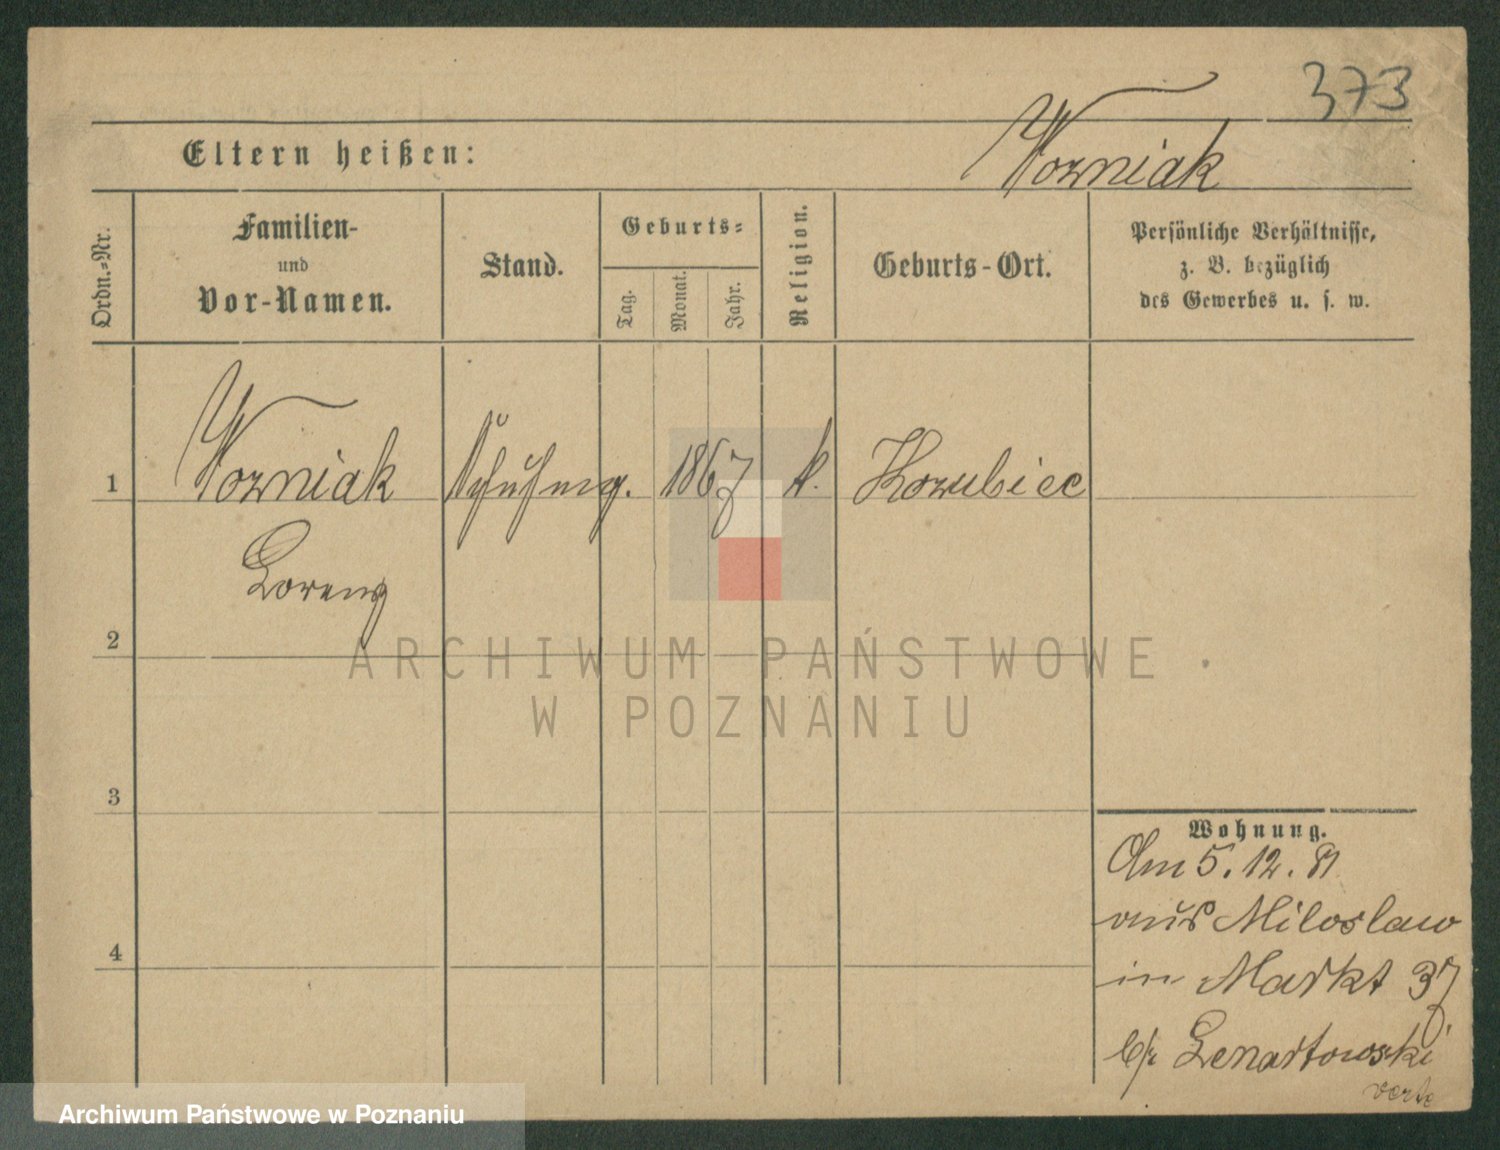 373
Eltern heißen:
Wozniak
Ordn.-Nr.
Familien-
und
Vor-Namen.
Stand.
Geburts-
Tag.
Monat.
Jahr.
Religion.
Geburts-Ort.
Persönliche Verhältnisse,
z. B. bezüglich
des Gewerbes u. s. w.
1 Wozniak Schuhmg. 1867 k. Kozubiec
Lorenz
2
ARCHIWUM PAŃSTWOWE
W POZNANIU
3
Wohnung.
Am 5. 12. 81
aus Miloslaw
4
in Markt 37
b/r Lenartowski
verte
Archiwum Państwowe w Poznaniu